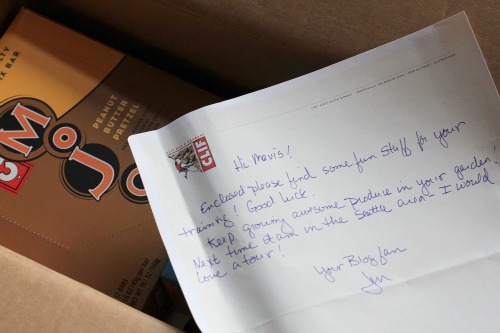 TY
X BAR
PEANUT
BUTTER
PRETZEL
C
MOJO
CLIF
Hi Mavis!
Enclosed please find some fun stuff for your
training! Good luck.
Keep growing awesome produce in your garden!
Next time I am in the Seattle area - I would
love a tour!
Your Blog fan
Jen